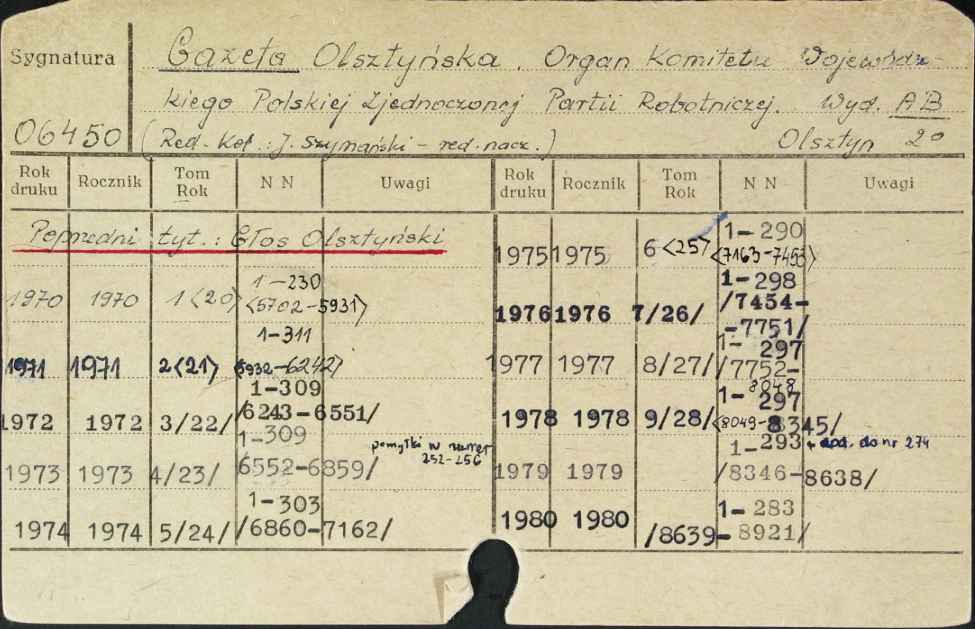 Sygnatura
06450
Gazeta Olsztyńska. Organ Komitetu Wojewódz-
kiego Polskiej Zjednoczonej Partii Robotniczej. Wyd. AB
(Red. Kol.: J. Szymański - red. nacz.) Olsztyn 20
Rok druku Rocznik Tom Rok NN Uwagi Rok druku Rocznik Tom Rok NN Uwagi
Poprzedni tyt.: Głos Olsztyński
1970 1970 1<20> 1-230
<5702-5931>
1971 1971 2<21> 1-311
<5932-6242>
1972 1972 3/22/ 1-309
/6243-6551/
1973 1973 4/23/ 1-309
/6552-6859/ pomyłki w numer
252-256
1974 1974 5/24/ 1-303
/6860-7162/
1975 1975 6<25> 1-290
<7163-7453>
1976 1976 7/26/ 1-298
/7454-
-7751/
1977 1977 8/27/ 1-297
/7752-
8048
1978 1978 9/28/ 1-297
<8049-8345/
1979 1979 1-293 + dod. do nr 274
/8346-8638/
1980 1980 1-283
/8639-8921/